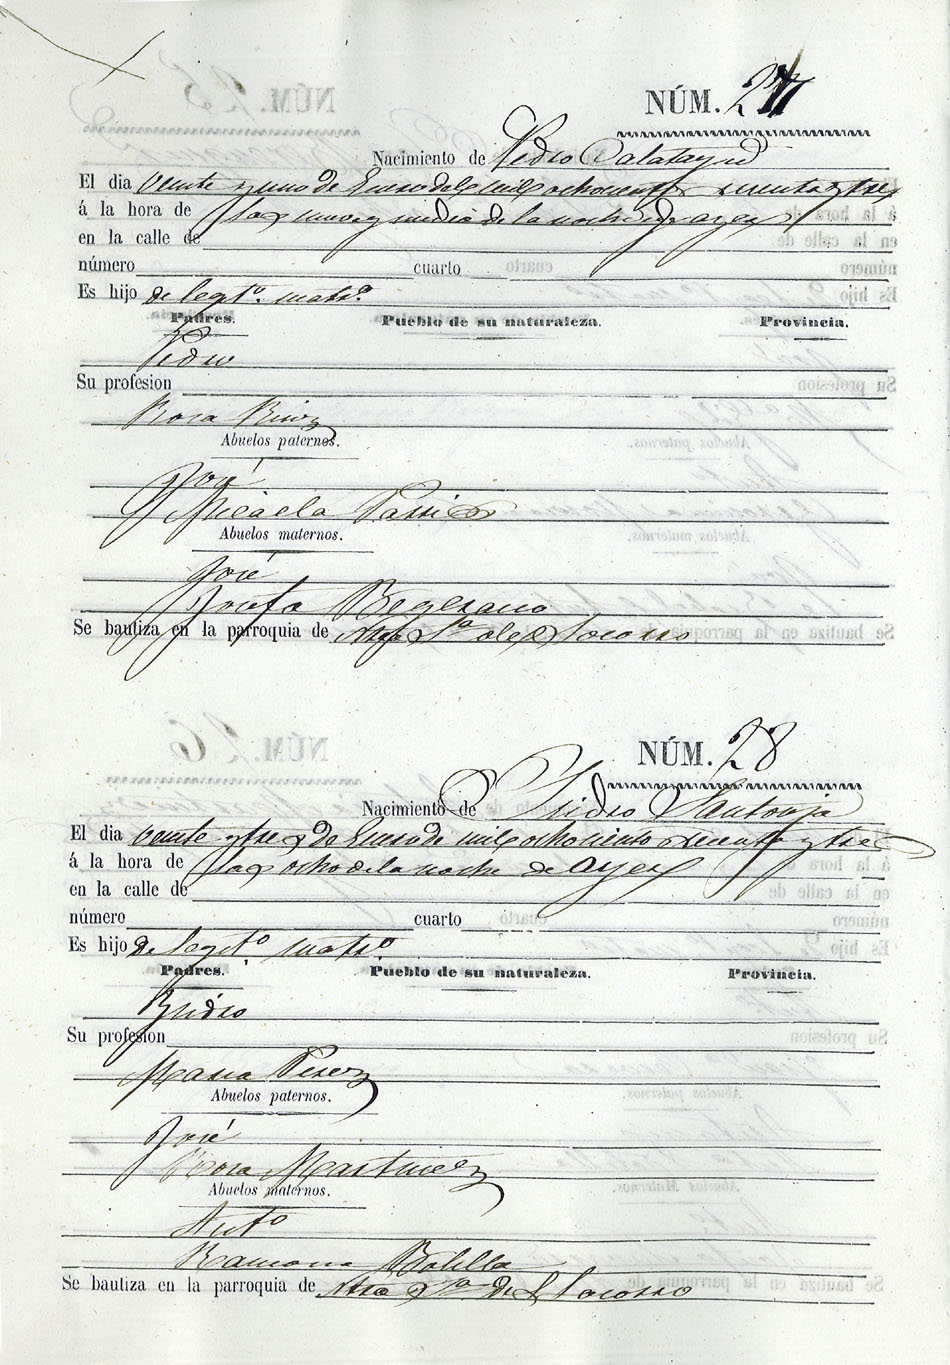 NÚM. 27
Nacimiento de Pedro Calatayud
El dia veinte y uno de Enero de mil ochocientos y tres
á la hora de las nueve y media de la noche de ayer
en la calle de
número cuarto
Es hijo de legto. matro.
Padres. Pueblo de su naturaleza. Provincia.
Pedro
Su profesion
Rosa
Abuelos paternos.
José
Micaela
Abuelos maternos.
José
Josefa Begerano
Se bautiza en la parroquia de Ntra Sra del Socorro
NÚM. 28
Nacimiento de Isidro Santonja
El dia veinte y tres de Enero de mil ochociento y tres
á la hora de las ocho de la noche de ayer
en la calle de
número cuarto
Es hijo de legto. matro.
Padres. Pueblo de su naturaleza. Provincia.
Isidro
Su profesion
Maria Perez
Abuelos paternos.
José
Rosa Martinez
Abuelos maternos.
Anto
Ramona Botella
Se bautiza en la parroquia de Ntra Sra del Socorro